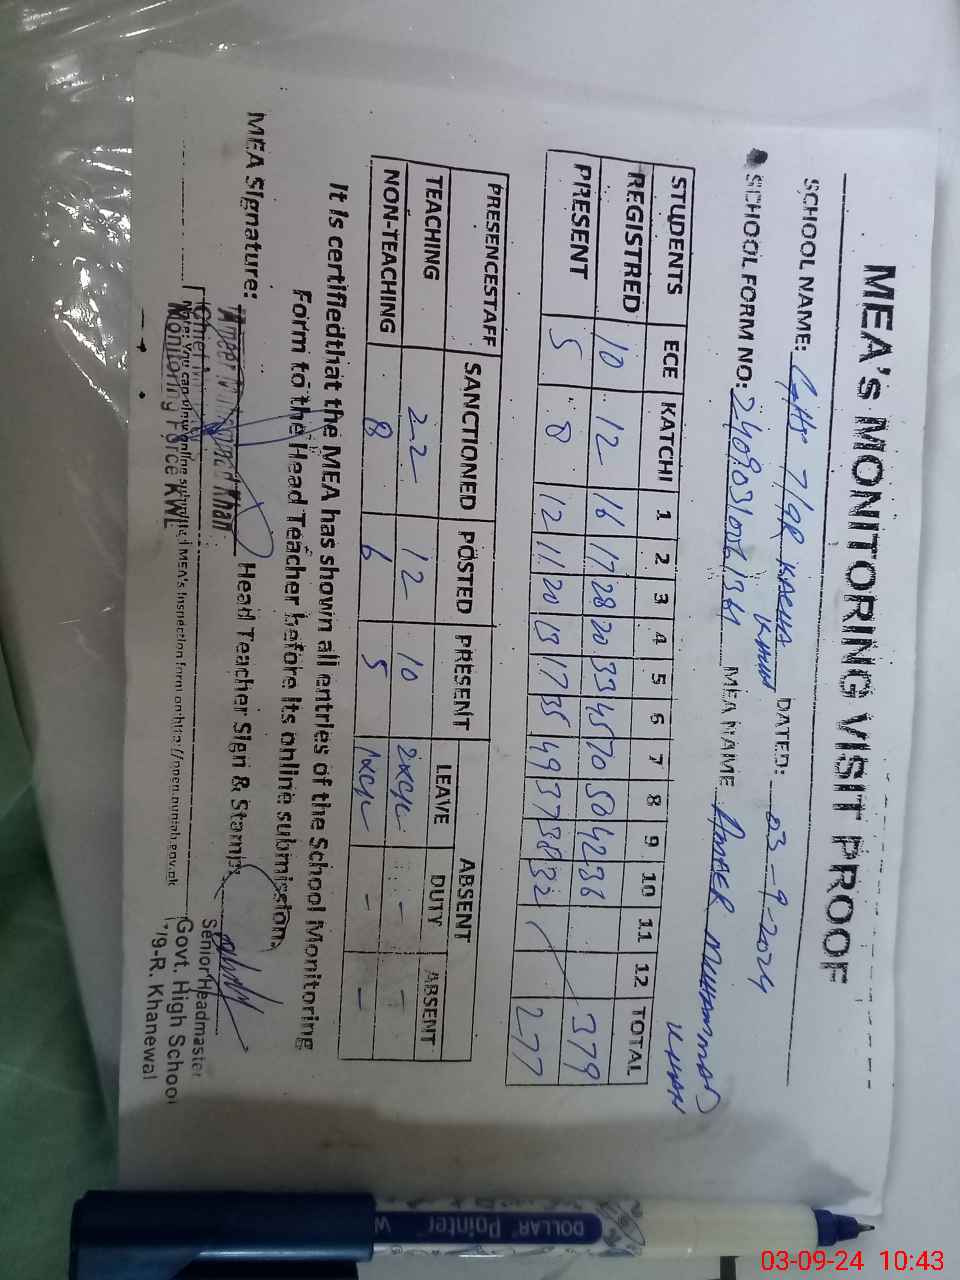 MEA's MONITORING VISIT PROOF
SCHOOL NAME: GHS 7/9R KACHA KHUH DATED: 03-9-2024
SCHOOL FORM NO: MEA NAME AMEER MUHAMMAD KHAN
STUDENTS ECE KATCHI 1 2 3 4 5 6 7 8 9 10 11 12 TOTAL
REGISTRED 10 12 16 17 28 20 33 45 70 50 42 36 379
PRESENT 5 8 12 11 20 13 17 35 49 37 38 32 277
PRESENCESTAFF SANCTIONED POSTED PRESENT ABSENT
LEAVE DUTY ABSENT
TEACHING 22 12 10 - -
NON-TEACHING 8 6 5 - -
It is certifiedthat the MEA has shown all entries of the School Monitoring
Form to the Head Teacher before its online submission.
MEA Signature: Head Teacher Sign & Stamp:
Ameer Muhammad Khan
Monitoring Force KWL
Note: You can view online submitted MEA's Inspection form on http://open.punjab.gov.pk
Senior Headmaster
Govt. High School
7/9-R. Khanewal
DOLLAR Pointer
03-09-24 10:43